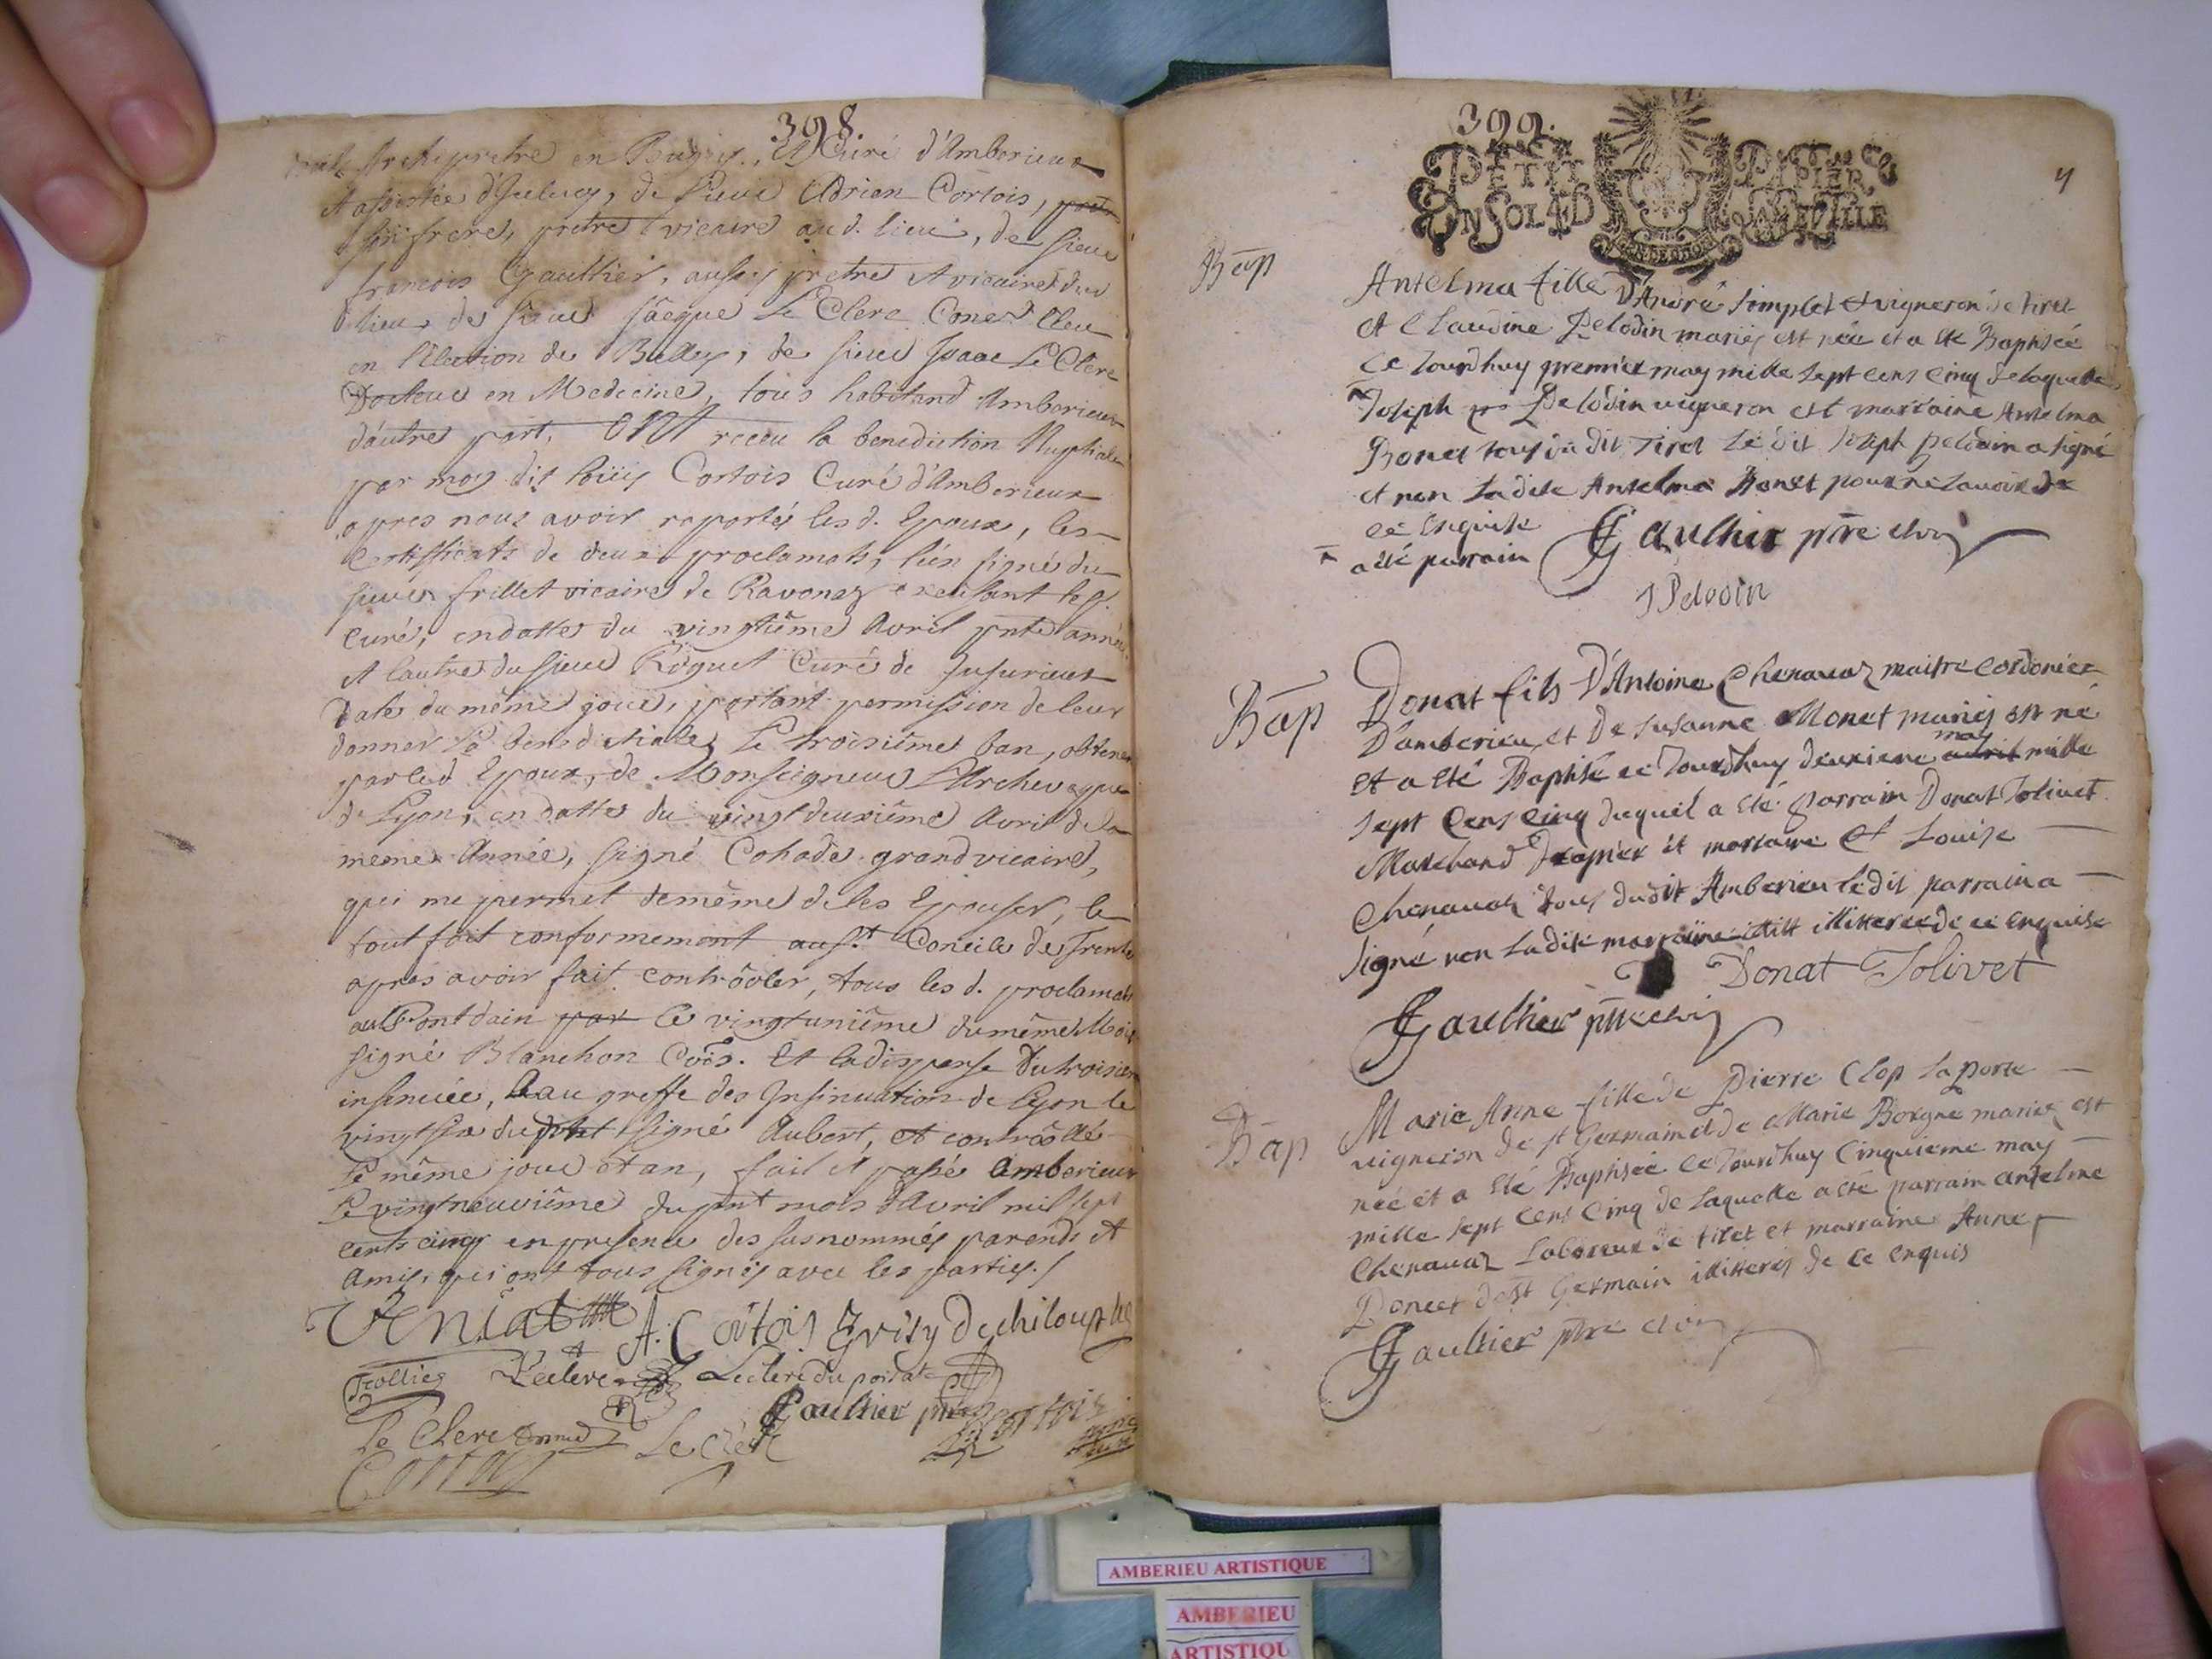 398.
Archipretre en Bugey, Et Curé d'Amberieux
et assistée d'Iceluy, de Sieur Adrien Cortois,
son frere, pretre vicaire aud. lieu, de sieur
francois Gaulthier, aussy pretre et vicaire dud
lieu, de sieur Jâcque Le Clerc Coner Eleu
en l'Election de Belley, de sieur Isaac Le Clerc
Docteur en Medecine, tous habitand Amberieux
d'autre part, ONT receu la benediction Nuptiale
par moy dit loüis Cortois Curé d'Amberieux
apres nous avoir raportés les d. Epoux, les
Certifficats de deux proclamats, l'un signé du
sieur frillet vicaire de Ravonaz
Curé, en datte du vingtiême Avril pnte année
et l'autre du sieur Roguet Curé de Jujurieux
Daté du même jour, portant permission de leur
donner La benedictiale, Le troisiême ban, obtenu
par les d Epoux, de Monseigneur L'Archevesque
de Lyon, en datte du vingt deuxiême Avril de la
meme Année, signé Cohade grand vicaire,
qui me permet de même de les Epouser, le
tout fait conformement au St. Concile de Trente
après avoir fait contrôoler, tous les d. proclamats
au Pont dain par Ce vingtuniême du même Mois
signé Blanchon Cois. Et la dispense du troisiem
insinuée, au greffe des Insinuations de Lyon le
vingtsix du pnt signé Aubert, et contrôollé
Le même jour et an, fait et passé Amberieux
Le vingtneuviême du pnt mois d'Avril mil sept
cents cinq en presence des susnommés parends et
Amis, qui ont tous signés avec les parties./
A. Cortois Grisy Dechiloup
Trollier Leclerc Leclerc du poisat
Gaulthier ptre Cortois
Le Clerc Le Clerc
Cortois
399.
PETIT PAPIER
UN SOL 4 D LA FEUILLE
Bap
Antelma fille D'André Simplet et vigneron de tiret
et Claudine Pelodin mariés est née et a eté Baptisée
ce Jourdhuy premier may mille sept cens cinq de laquelle
Joseph Pelodin vigneron est marraine Antelma
Bonet tous du dit Tiret Le dit Joseph pelodin a signé
et non Ladite Antelma Bonet pour ne savoir de
ce enquise
a été parrain
Gaulthier ptre
J Pelodin
Bap
Donat fils D'Antoine Chenavaz maitre cordonier
D'amberieu et de Susanne Monet mariés est né
et a eté Baptisé ce Jourdhuy deuxieme avril may mille
sept cens cinq duquel a eté parrain Donat Jolivet
Marchand Drapier et marraine Louise
Chenavaz tous dudit Amberieu ledit parrain a
signé non Ladite marraine illitt illitterée de ce enquise
Donat Jolivet
Gaulthier ptre
Bap
Marie Anne fille de Pierre Clop Laporte
vigneron de st Germain et de Marie Borgne mariez est
née et a eté Baptisée ce Jourdhuy Cinquieme may
mille sept cens cinq de Laquelle a eté parrain antelme
Chenavaz Laboreur de tiret et marraine Anne
Poncet de st Germain illitterés de ce enquis
Gaulthier ptre
AMBERIEU ARTISTIQUE
AMBERIEU
ARTISTIQU